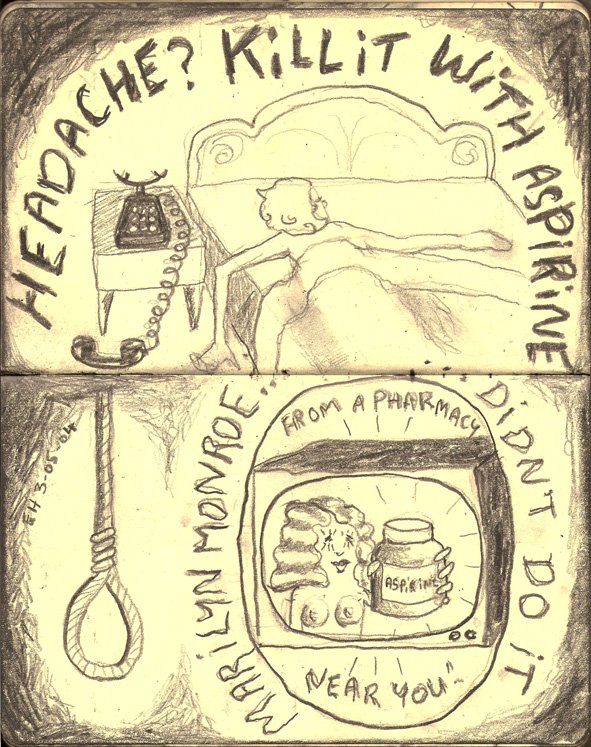 HEADACHE? KiLL iT WiTH ASPiRiNE
MARiLYN MONROE... DiDN'T DO iT
FROM A PHARMACY
ASPiRiNE
NEAR YOU"
EH 3-05-04